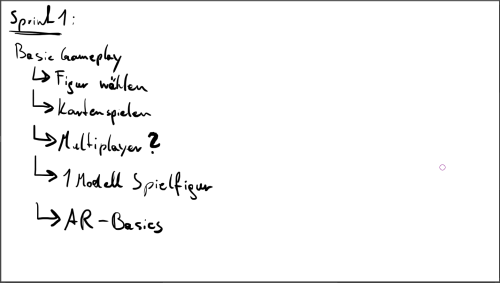 Sprint 1:
Basic Gameplay
Figur wählen
Kartenspielen
Multiplayer?
1 Modell Spielfigur
AR-Basics